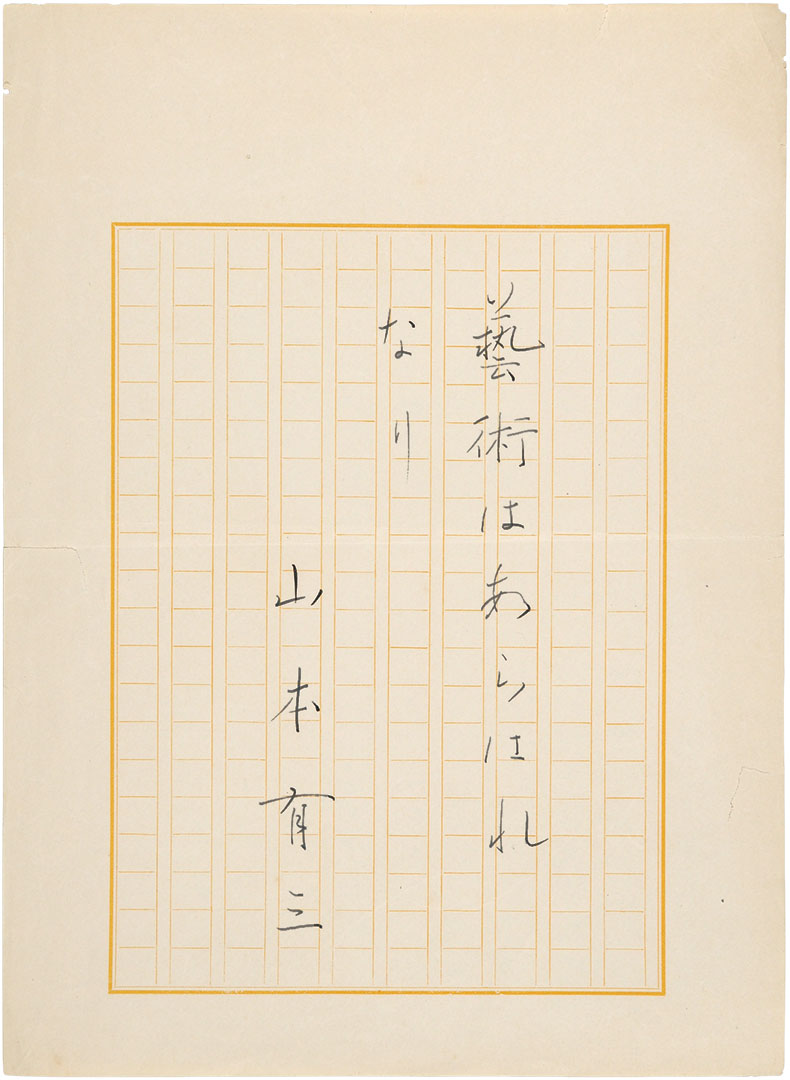 藝術はあらはれ
なり
山本有三